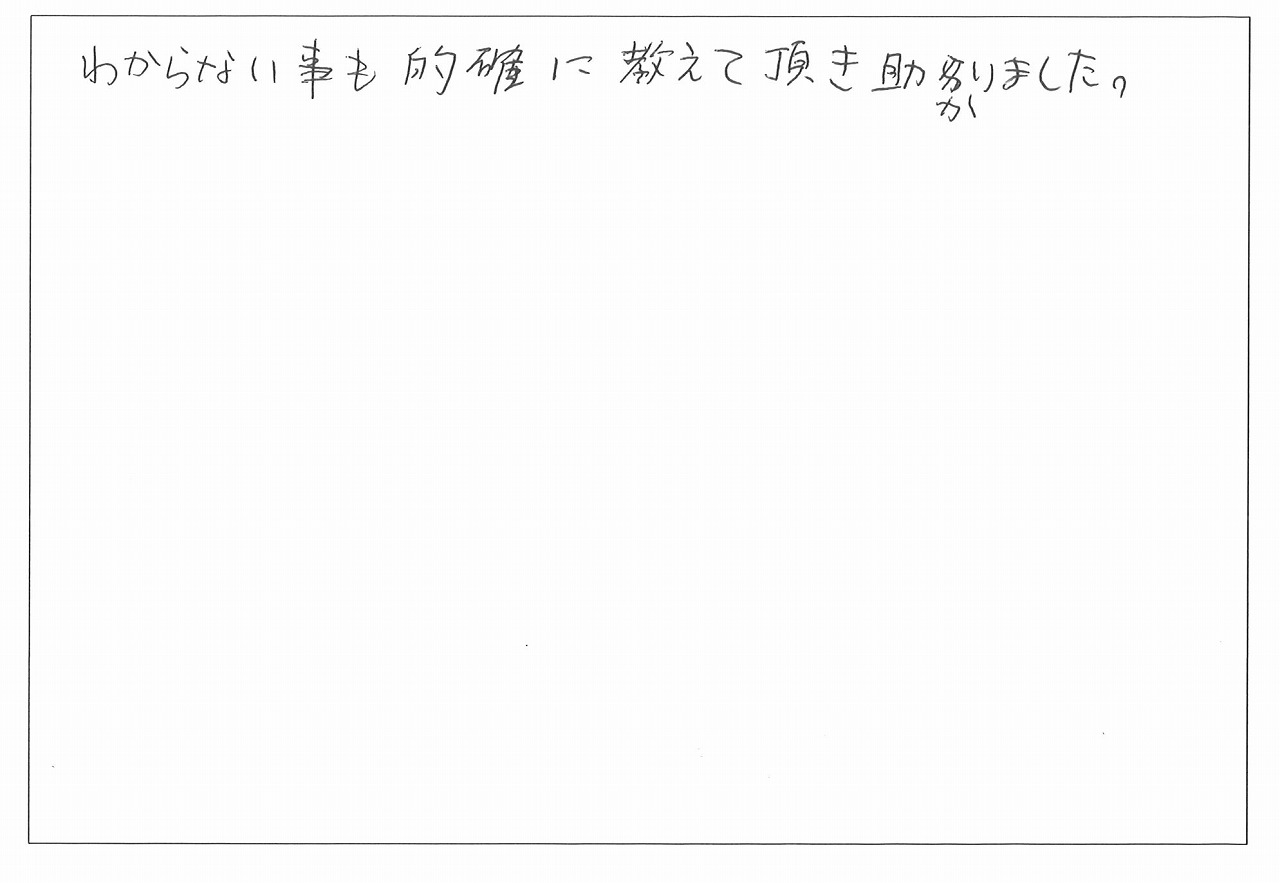 わからない事も的確に教えて頂き助かりました。